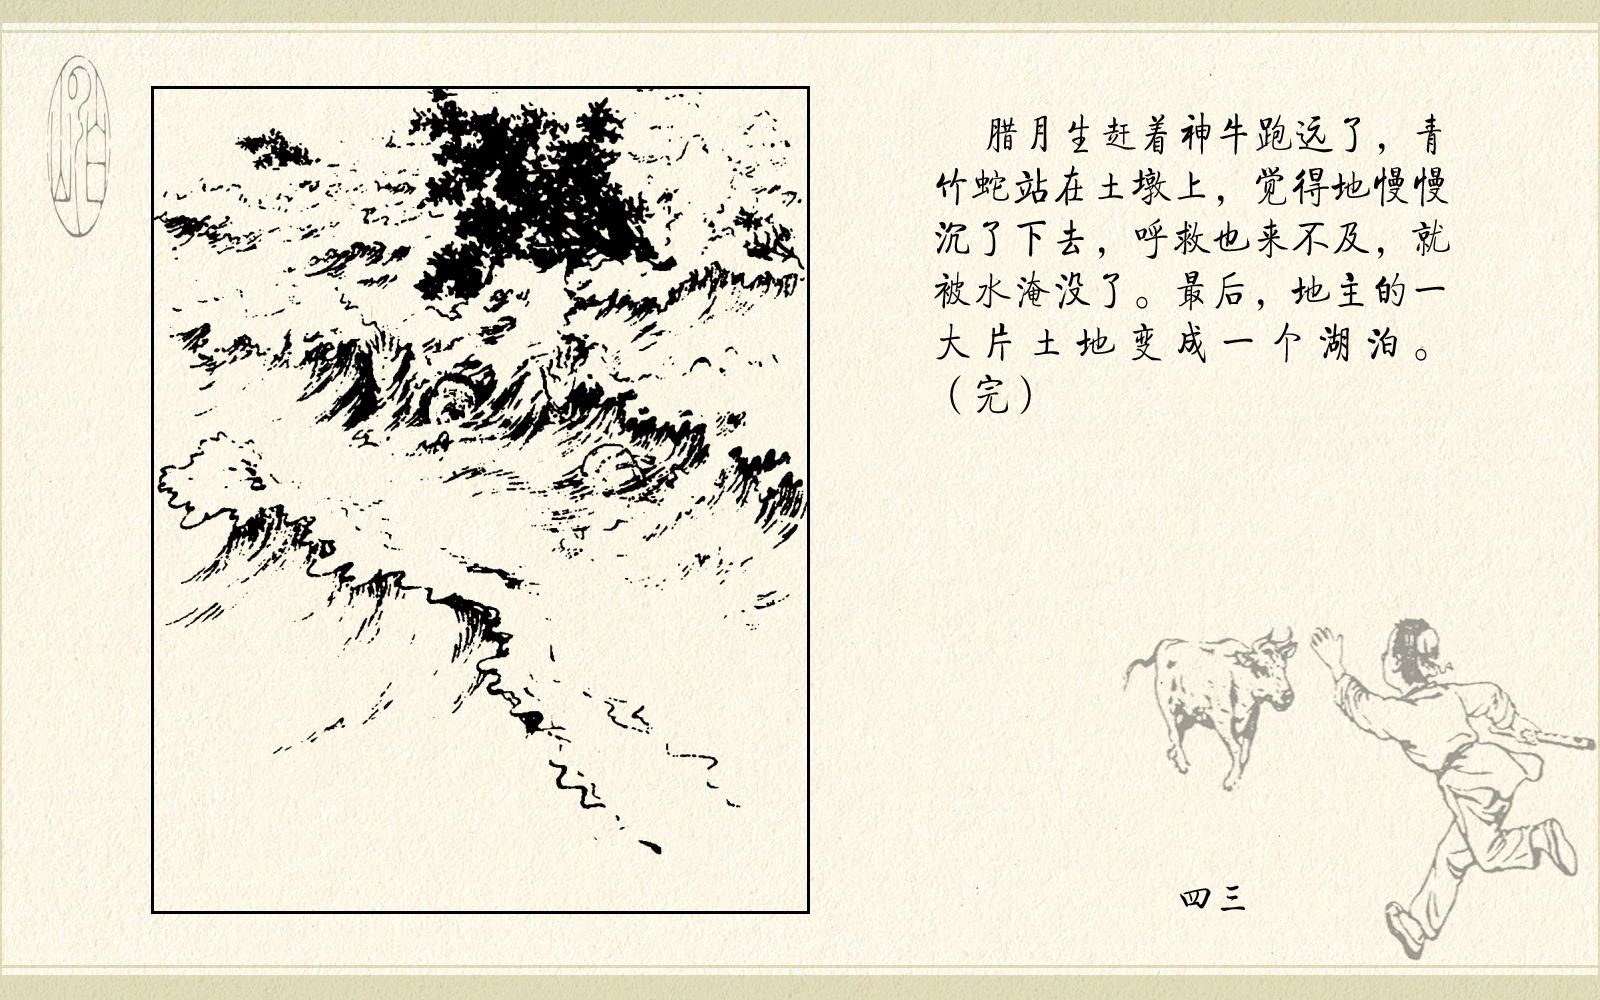 腊月生赶着神牛跑远了，青
竹蛇站在土墩上，觉得地慢慢
沉了下去，呼救也来不及，就
被水淹没了。最后，地主的一
大片土地变成一个湖泊。
（完）
四三